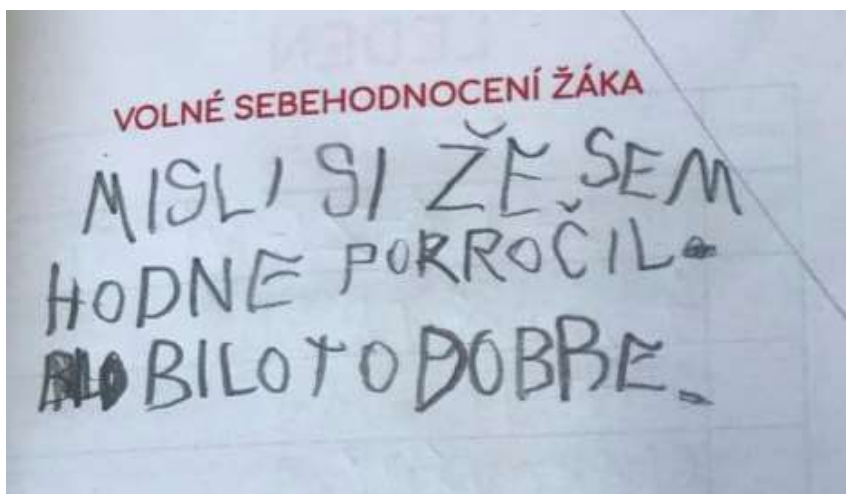 VOLNÉ SEBEHODNOCENÍ ŽÁKA
MISLI SI ŽE SEM
HODNE PORROČIL.
BILO TO DOBRE.